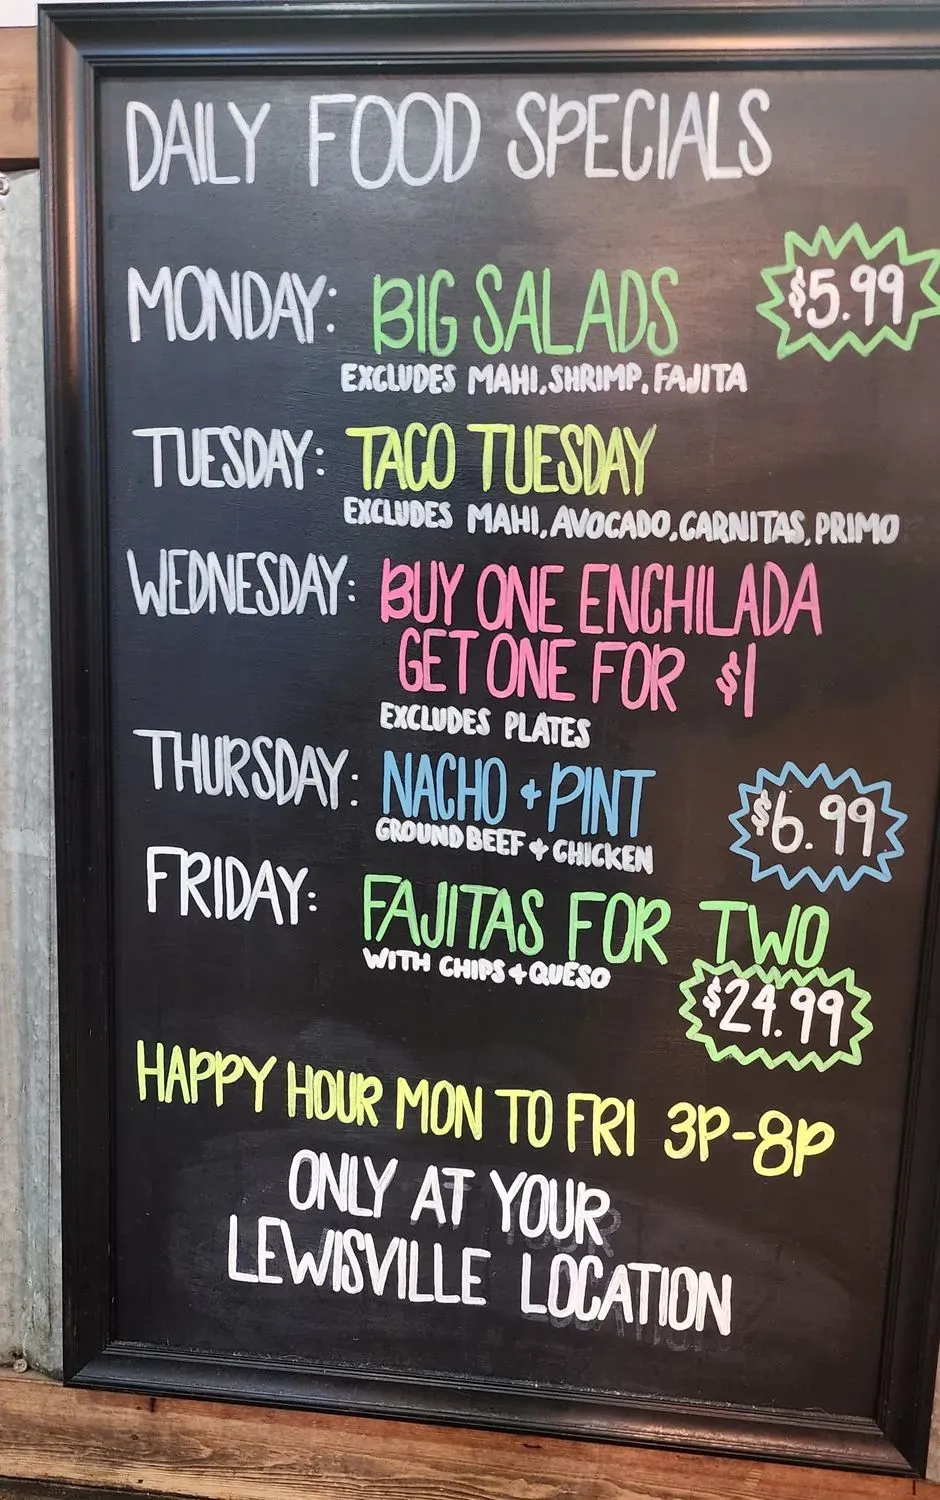 DAILY FOOD SPECIALS
MONDAY: BIG SALADS $5.99
EXCLUDES MAHI, SHRIMP, FAJITA
TUESDAY: TACO TUESDAY
EXCLUDES MAHI, AVOCADO, CARNITAS, PRIMO
WEDNESDAY: BUY ONE ENCHILADA
GET ONE FOR $1
EXCLUDES PLATES
THURSDAY: NACHO + PINT $6.99
GROUND BEEF + CHICKEN
FRIDAY: FAJITAS FOR TWO
WITH CHIPS + QUESO
$24.99
HAPPY HOUR MON TO FRI 3P-8P
ONLY AT YOUR
LEWISVILLE LOCATION